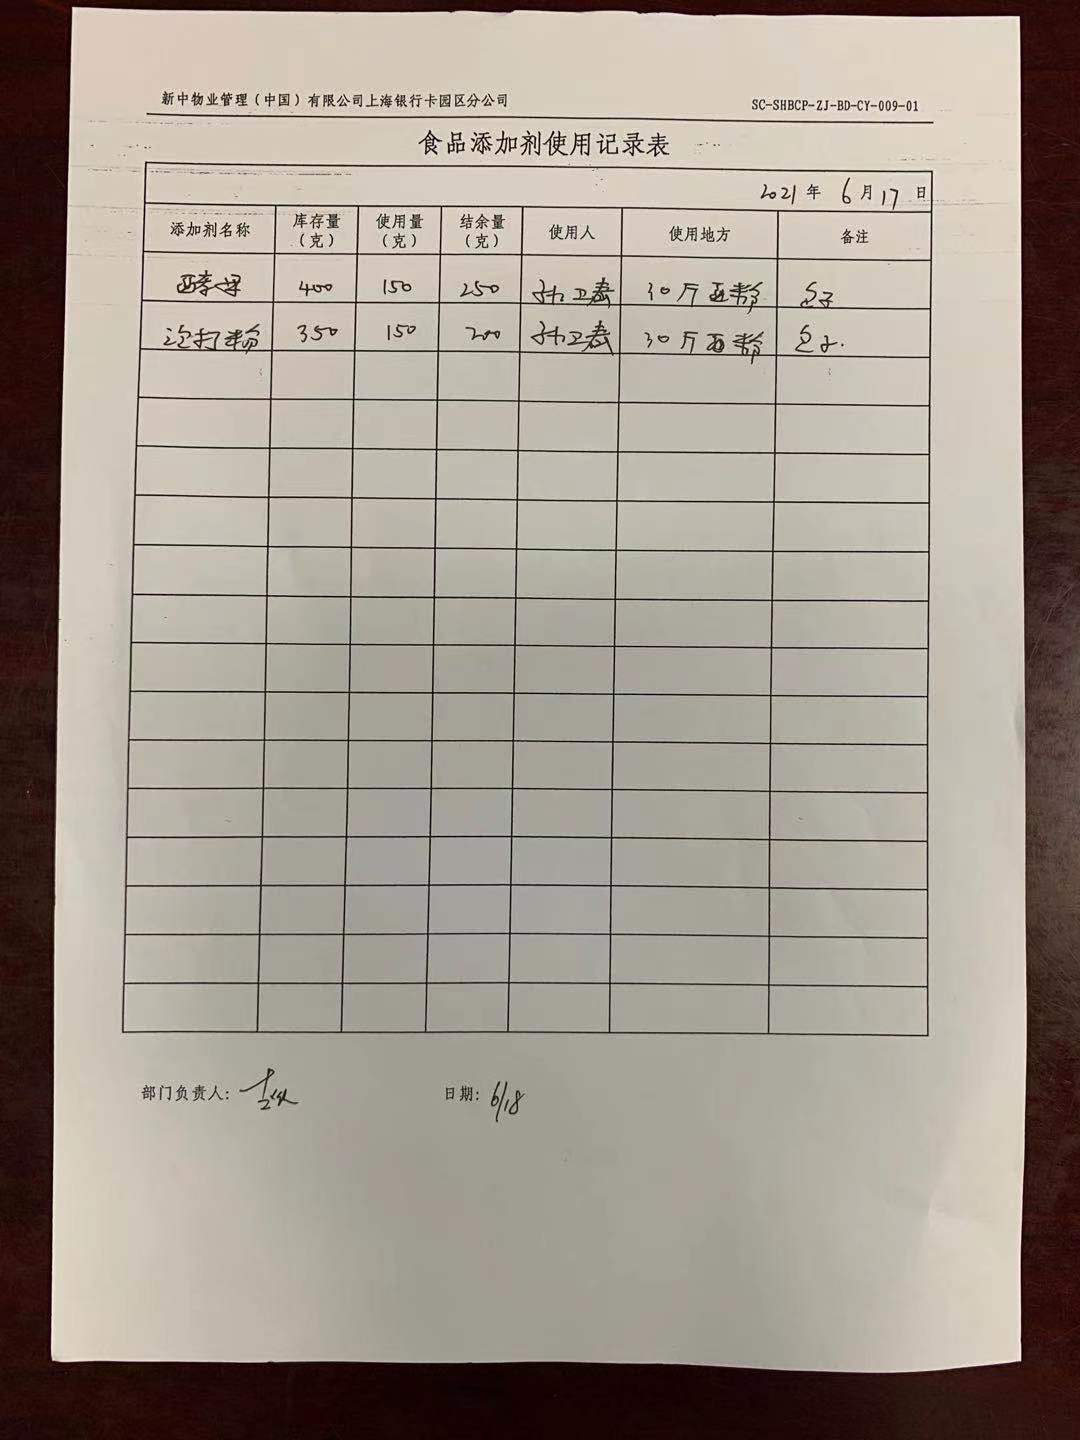 新中物业管理（中国）有限公司上海银行卡园区分公司 SC-SHBCP-ZJ-BD-CY-009-01
食品添加剂使用记录表
2021 年 6 月 17 日
添加剂名称 库存量（克） 使用量（克） 结余量（克） 使用人 使用地方 备注
酵母 400 150 250 孙卫春 30斤面粉 包子
泡打粉 350 150 200 孙卫春 30斤面粉 包子.
部门负责人： 日期：6/18